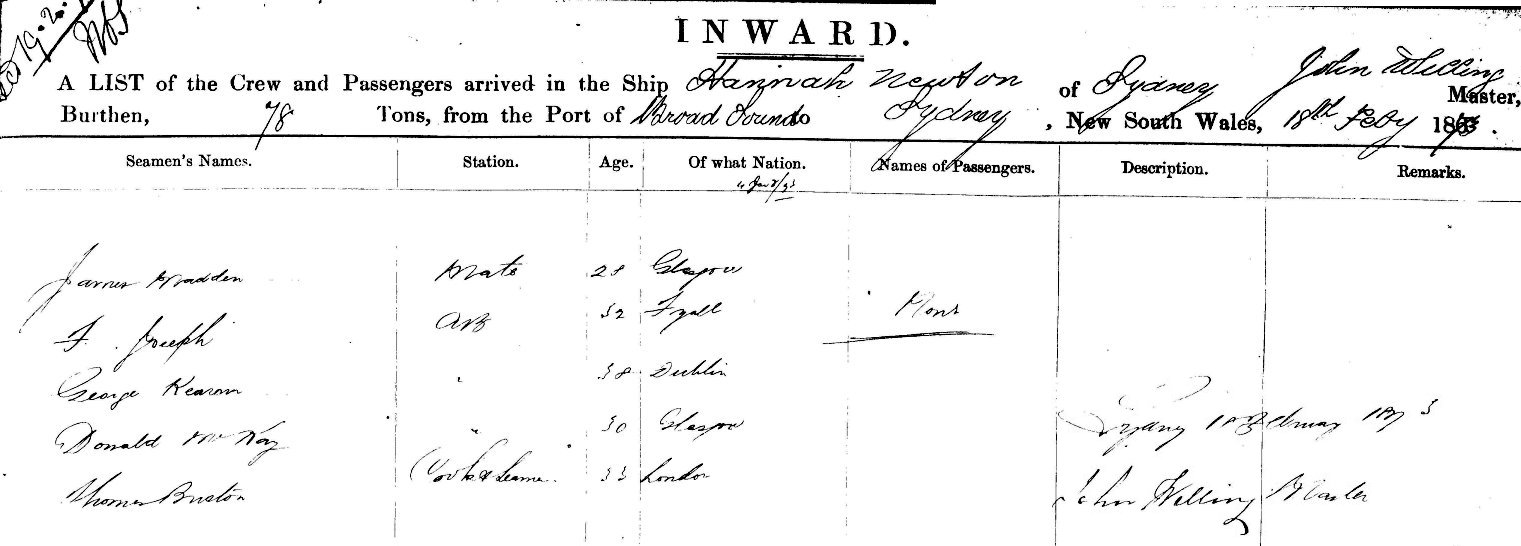 INWARD.
A LIST of the Crew and Passengers arrived in the Ship Hannah Newton of Sydney John Welling Master,
Burthen, 78 Tons, from the Port of Broad Sound to Sydney, New South Wales, 18th Feby 1873.
Seamen's Names. Station. Age. Of what Nation. Names of Passengers. Description. Remarks.
James Madden Mate 28 Glasgow
F. Joseph AB 32 Fyall None
George Kearon " 38 Dublin
Donald McKay " 30 Glasgow Sydney 18 February 1873
Thomas Burton Cook & Seaman 33 London John Welling Master